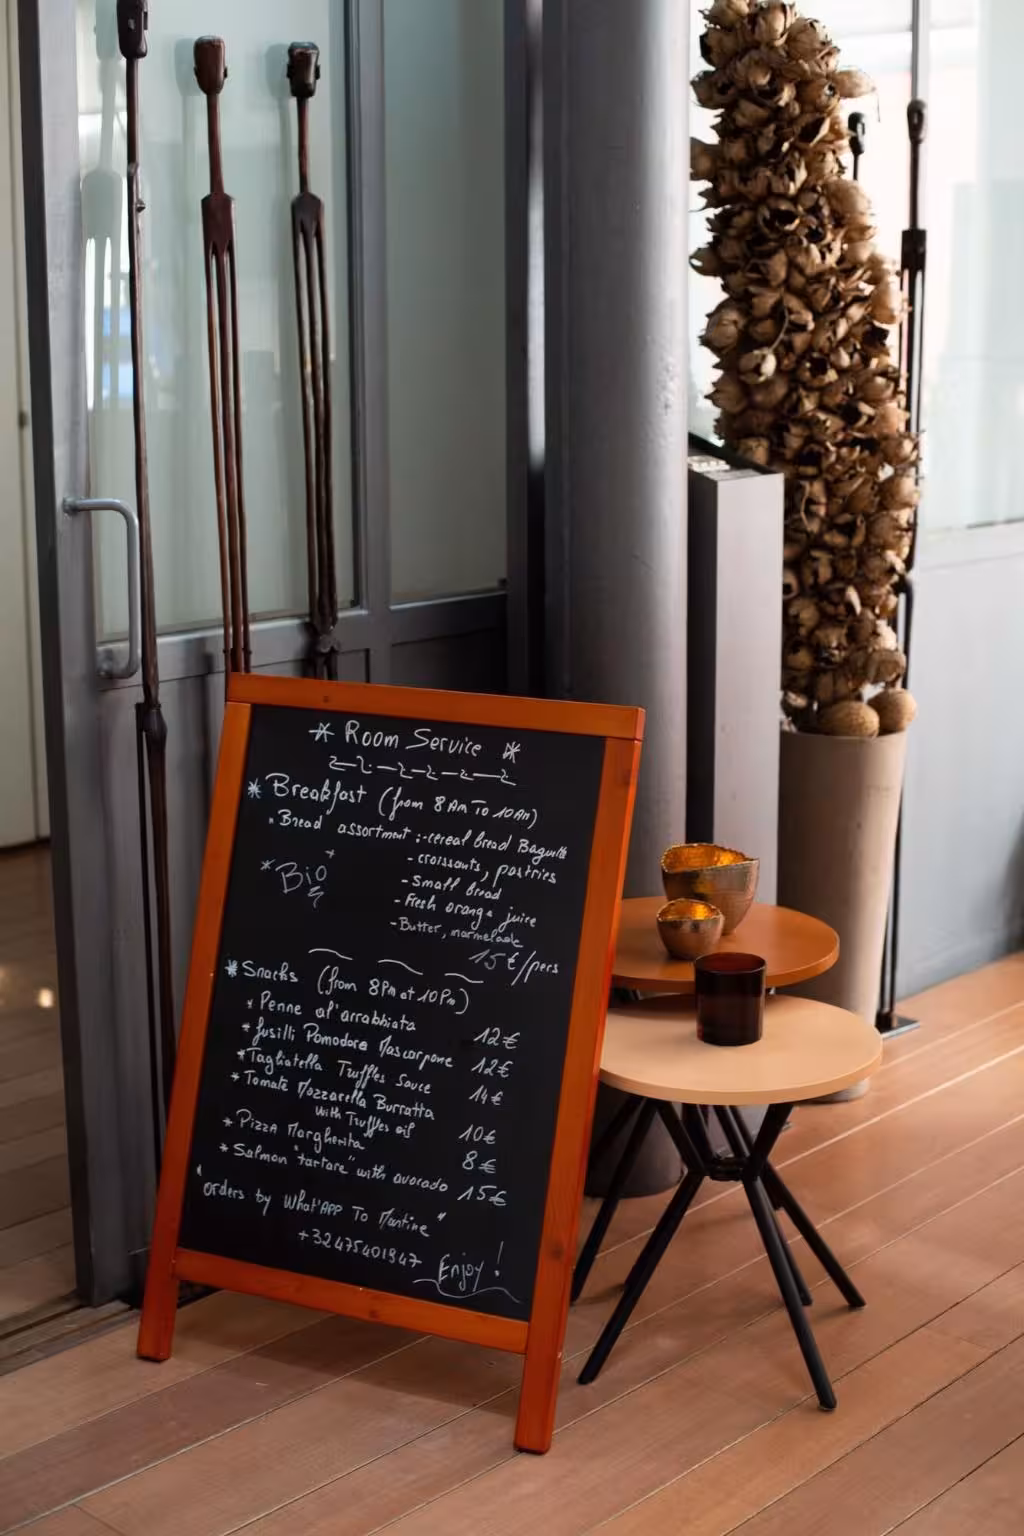 * Room Service *
* Breakfast (from 8 AM To 10 AM)
• Bread assortment :- cereal bread Baguette
- croissants, pastries
* Bio
- Small bread
- Fresh orange juice
- Butter, marmelade
15€/pers
* Snacks (from 8PM at 10PM)
* Penne al'arrabbiata 12€
* fusilli Pomodore Mascarpone 12€
* Tagliatella Truffles Sauce 14€
* Tomate Mozzarella Burratta
with Truffles oil 10€
* Pizza Margherita 8€
* Salmon "tartare" with avocado 15€
"orders by What'APP To Martine"
+32475401947
Enjoy !